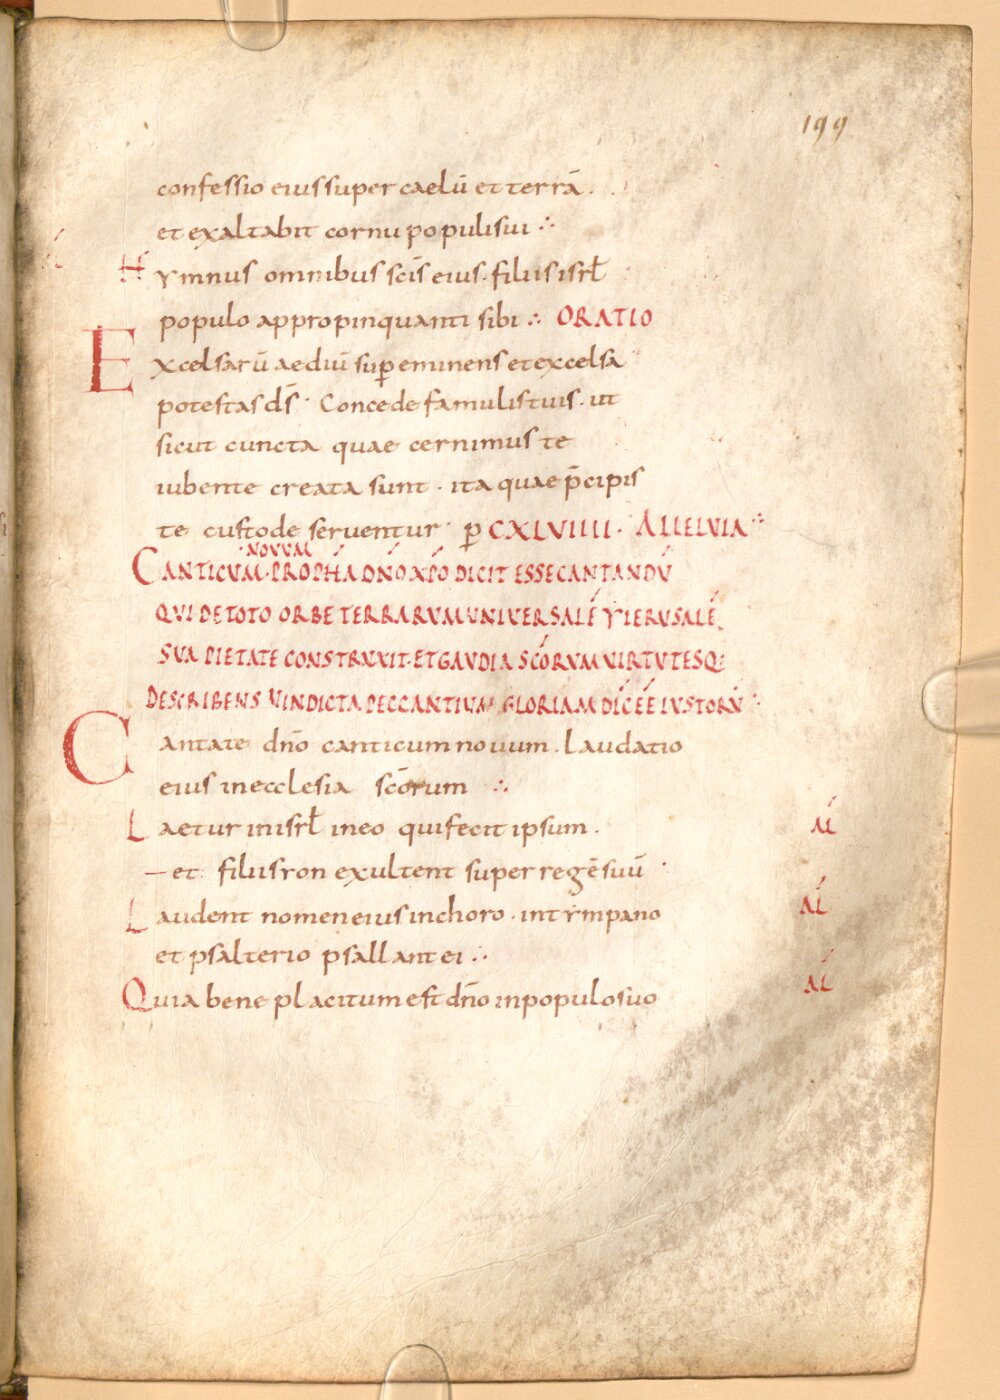 199
confessio eius super caelū et terrā.
et exaltabit cornu populi sui ∴
Hymnus omnibus scīs eius. filiis isrł
populo appropinquanti sibi ∴ ORATIO
Excelsarū aediū sup eminens et excelsa
potestas ds̄. Concede famulis tuis. ut
sicut cuncta quae cernimus te
iubente creata sunt. ita quae p̄cipis
te custode serventur. p CXLVIIII. ALLELVIA ∴
NOVVM
CANTICVM. PROPHA DNO XPO DICIT ESSE CANTANDŪ
QVI DE TOTO ORBE TERRARVM UNIVERSALĒ YIERUSALĒ
SVA PIETATE CONSTRVXIT. ET GAVDIA SCORVM VIRTVTESQ:
DESCRIBENS VINDICTA PECCANTIVM GLORIAM DICEE IVSTORV̄
Cantate dn̄o canticum novum. Laudatio
eius in ecclesia scōrum ∴
Laetur in isrł in eo qui fecit ipsum. AL
– et filii syon exultent super regē suū
Laudent nomen eius in choro. in tympano AL
et psalterio psallant ei ∴
Quia bene placitum est dn̄o in populo suo AL